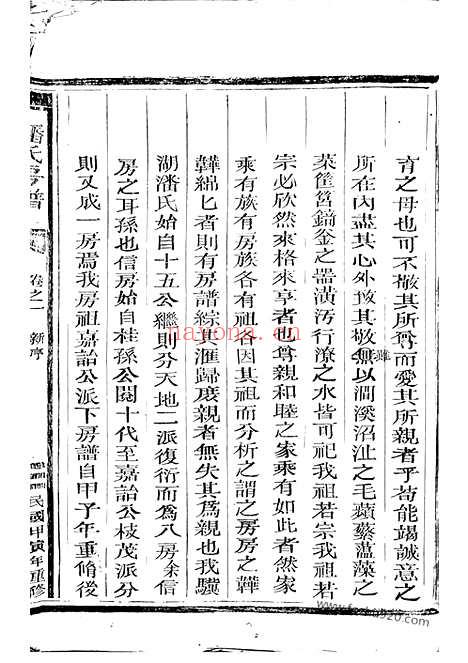 育之母也可不敬其所尊而愛其所親者乎苟能竭誠意之
所在內盡其心外致其敬雖無以澗溪沼沚之毛蘋蘩薀藻之
菜筐筥錡釜之器潢汙行潦之水皆可祀我祖若宗我祖若
宗必欣然來格來享者也尊親和睦之家乘有如此者然家
乘有族有房族各有祖各因其祖而分析之謂之房房之譁
譁綿匕者則有房譜綜其滙歸庶親者無失其為親也我驥
湖潘氏始自十五公繼則分天地二派復衍而為八房余信
房之耳孫也信房始自桂孫公閱十代至嘉詒公枝茂派分
則又成一房焉我房祖嘉詒公派下房譜自甲子年重脩後
潘氏房譜
卷之一
新序
民國甲寅年重修
nayona.cn